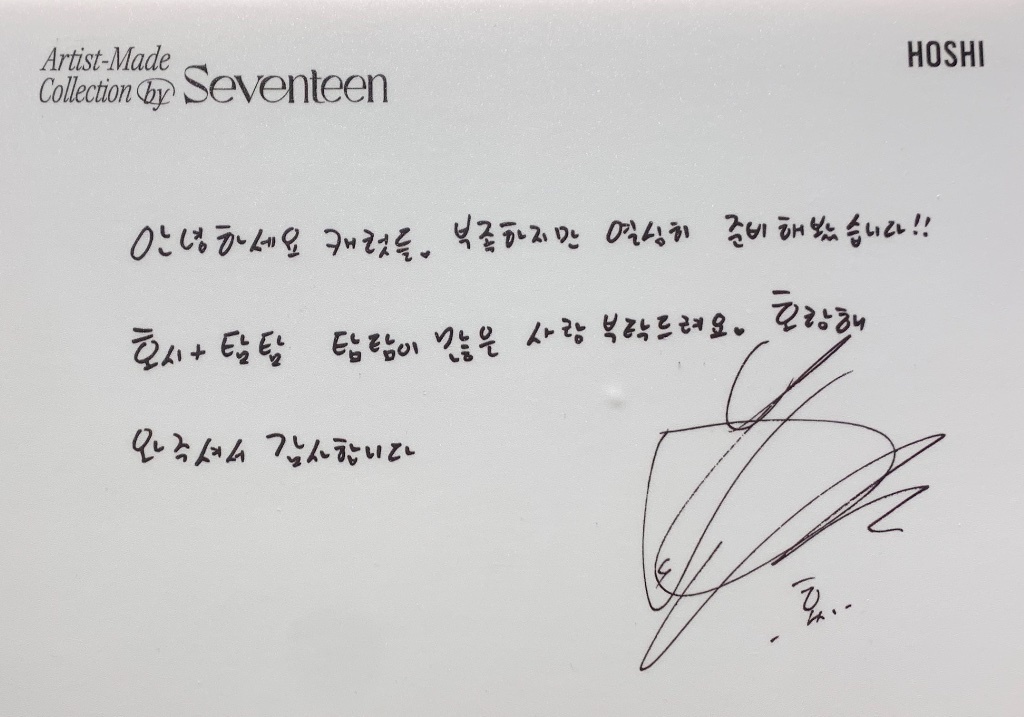 Artist-Made
Collection by Seventeen
HOSHI
안녕하세요 캐럿들. 부족하지만 열심히 준비해봤습니다!!
호시+탐탐 탐탐이 많은 사랑 부탁드려요. 호랑해
와주셔서 감사합니다